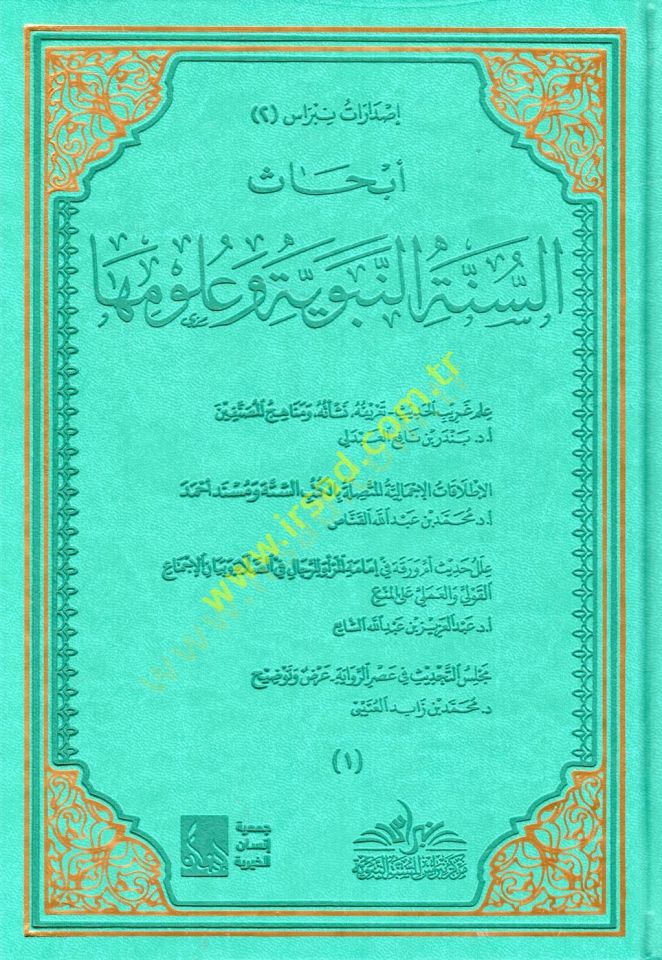 إصدارات نبراس (٢)
أبحاث
السُّنَّةِ النَّبَوِيَّةِ وَعُلُومِهَا
علم غريب الحديث - تعريفه، نشأته، ومناهج المصنفين
أ.د. بندر بن نافع العبدلي
الإطلاقات الإجمالية المتصلة بالكتب الستة ومسند أحمد
أ.د. محمد بن عبد الله القناص
علل حديث أم ورقة في إمامة المرأة للرجال في الصلاة وبيان الإجماع
القولي والعملي على المنع
أ.د. عبد العزيز بن عبد الله الشايع
مجلس التحديث في عصر الرواية - عرض وتوضيح
د. محمد بن زايد العتيبي
(١)
جمعية
إنسان
الخيرية
نبراس
مركز نبراس السنة النبوية
www.irsad.com.tr